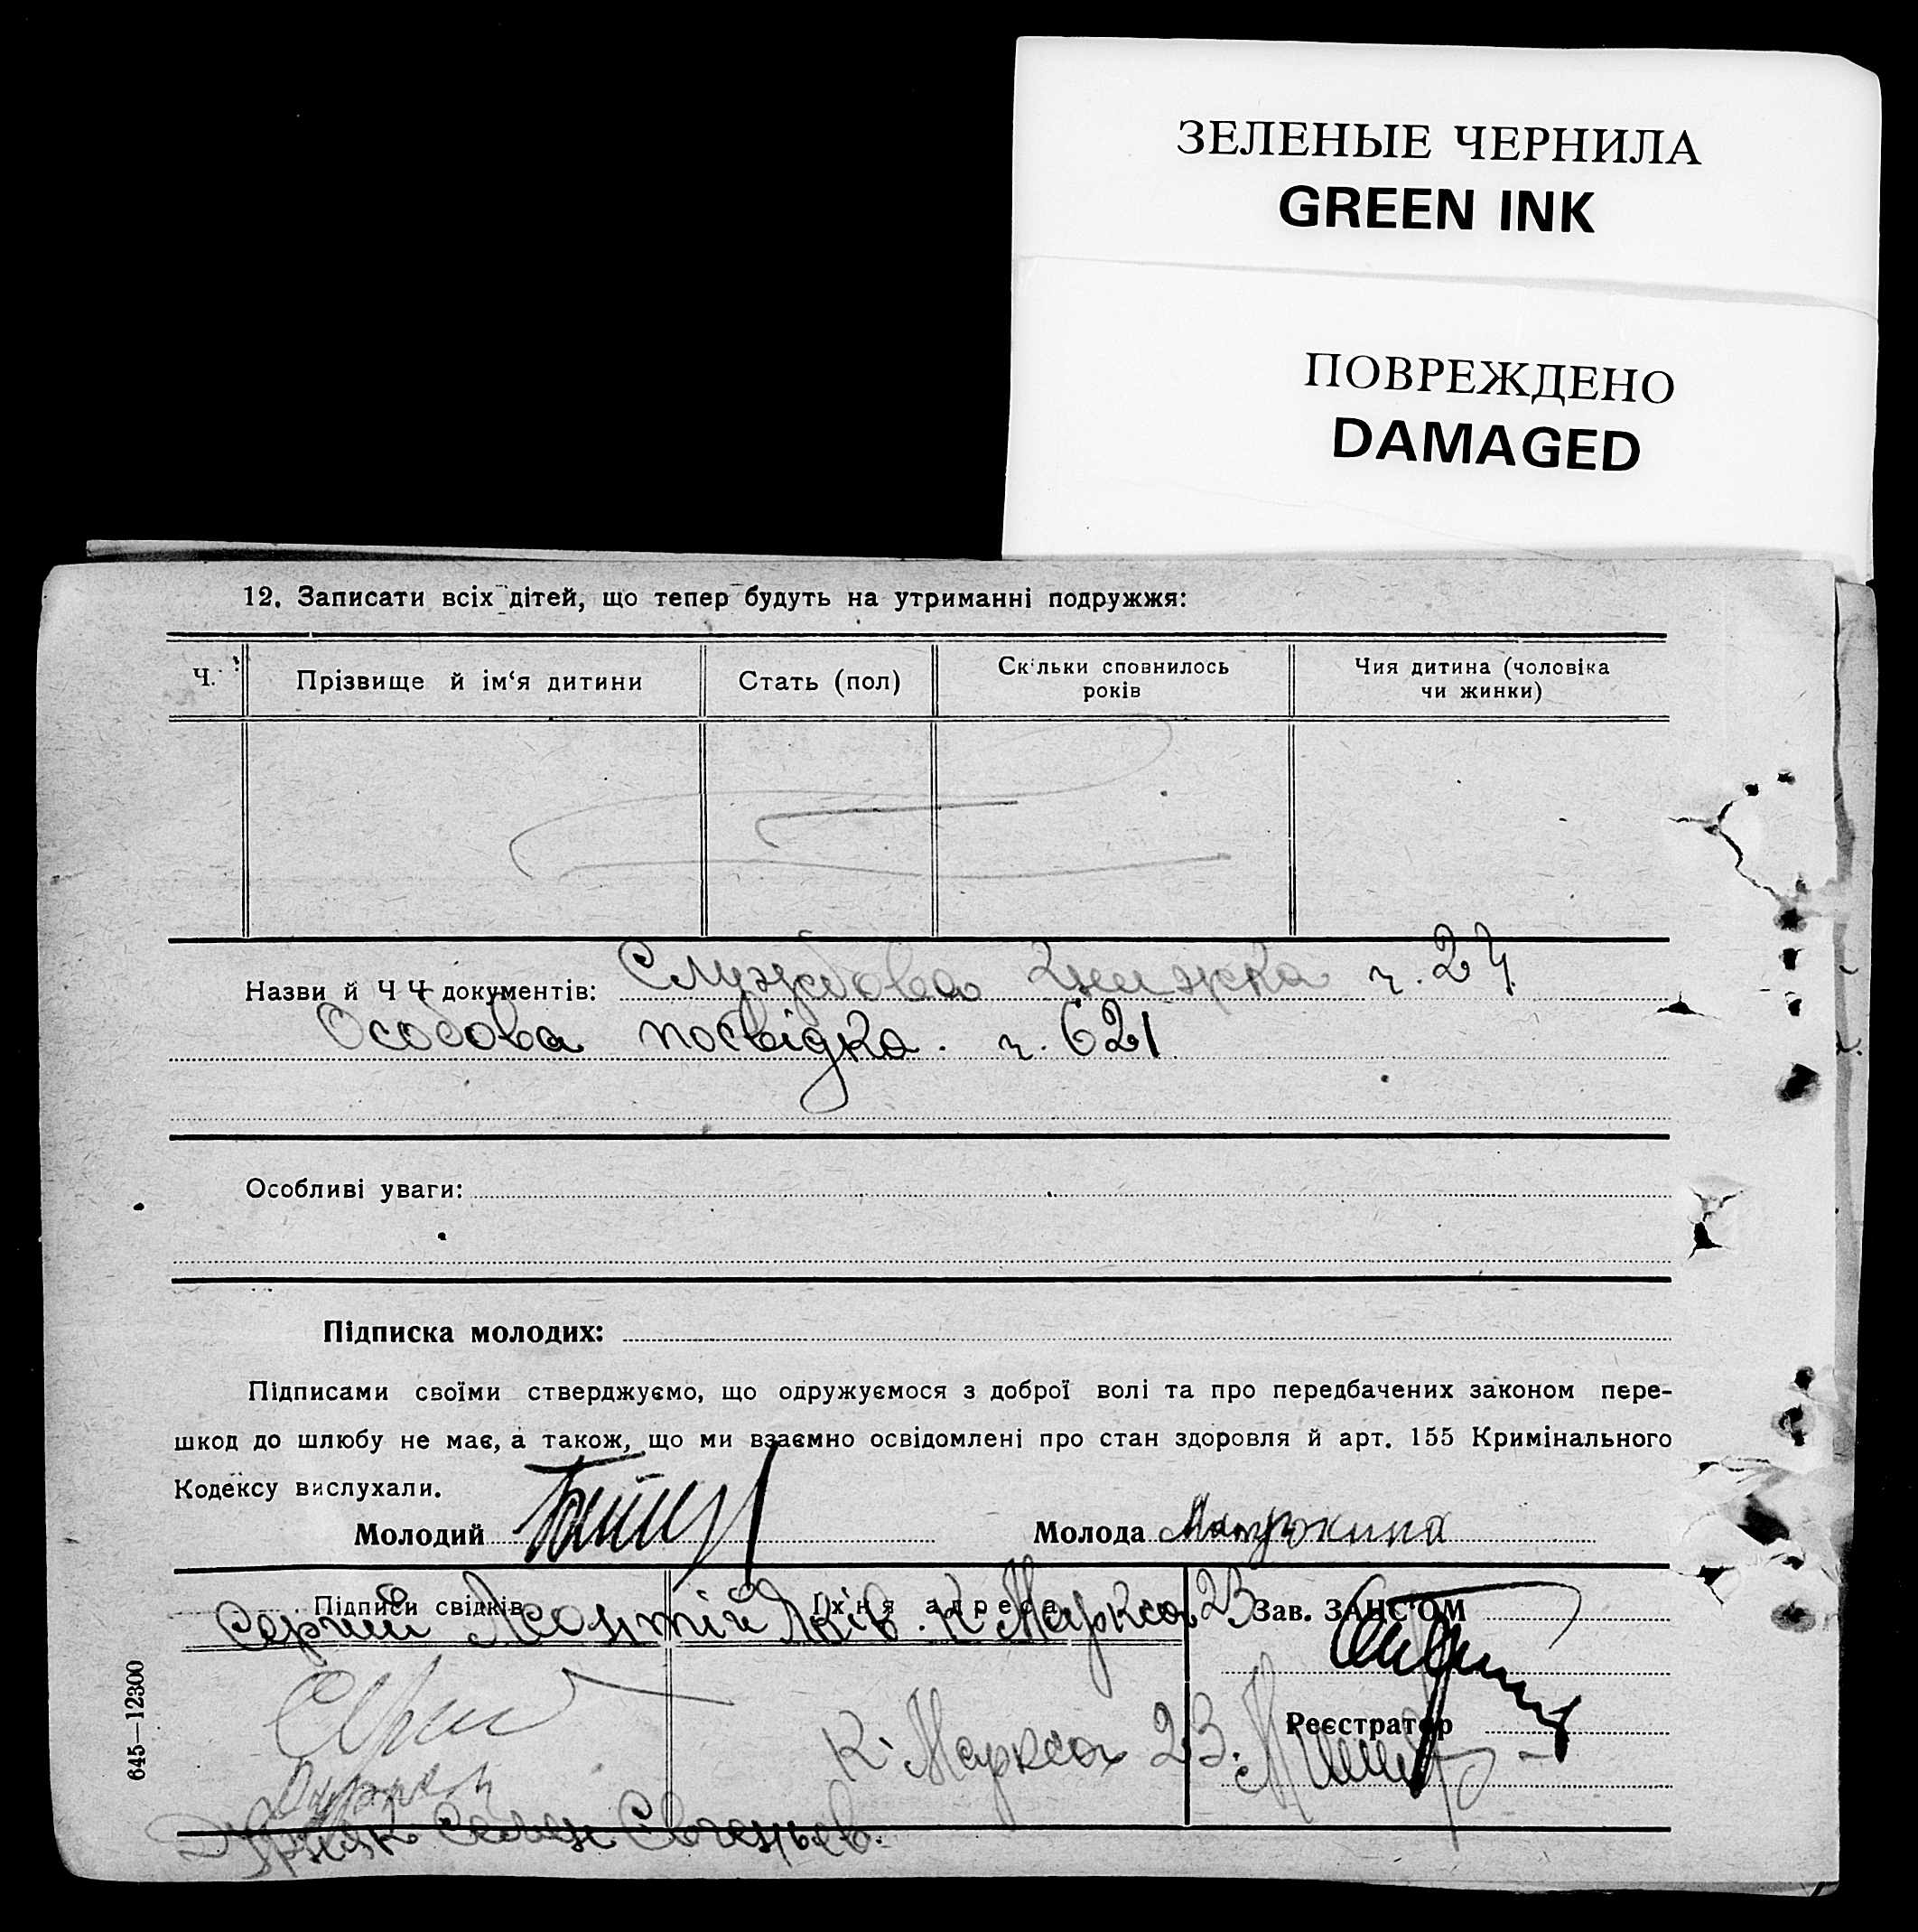 ЗЕЛЕНЫЕ ЧЕРНИЛА
GREEN INK
ПОВРЕЖДЕНО
DAMAGED
12. Записати всіх дітей, що тепер будуть на утриманні подружжя:
Ч. Прізвище й ім‘я дитини Стать (пол) Скільки сповнилось років Чия дитина (чоловіка чи жинки)
Назви й Ч Ч документів: Службова книжка ч. 24
Особова посвідка. ч. 621
Особливі уваги:
Підписка молодих:
Підписами своїми стверджуємо, що одружуємося з доброї волі та про передбачених законом пере-
шкод до шлюбу не має, а також, що ми взаємно освідомлені про стан здоровля й арт. 155 Кримінального
Кодексу вислухали.
Молодий Молода
Підписи свідків Їхня адреса Зав. ЗАНС'ОМ
К. Маркса 23
Реєстратор
К. Маркса 23.
645—12300